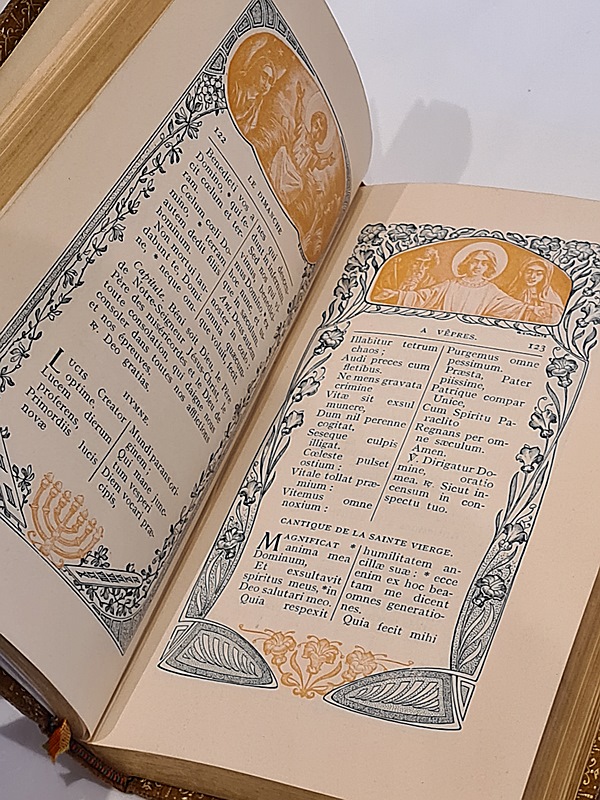 122 LE DIMANCHE
Benedicti vos a
Domino, * qui fe-
cit cœlum et ter-
ram.
Cœlum cœli Do-
mino, * terram
autem dedit filiis
hominum.
Non mortui lau-
dabunt te, Domi-
ne, * neque omnes
qui
Sed nos
Domino,
hoc nunc
Ant. Deus
noster
omnia
que voluit
Capitule. Béni soit Dieu, le Père
de Notre-Seigneur Jésus-
père des miséricordes et le Dieu de
toute consolation, qui daigne nous
consoler dans toutes nos afflictions
et nos épreuves.
℟. Deo gratias.
HYMNE.
LUCIS Creator
optime,
Lucem dierum
proferens,
Primordiis lucis
novæ
Mundi parans ori-
ginem;
Qui mane junc-
tum vesperi
Diem vocari præ-
cipis,
A VÊPRES. 123
Illabitur tetrum
chaos;
Audi preces cum
fletibus.
Ne mens gravata
crimine
Vitæ sit exsul
munere,
Dum nil perenne
cogitat,
Seseque culpis
illigat.
Cœleste pulset
ostium:
Vitale tollat præ-
mium:
Vitemus omne
noxium:
Purgemus omne
pessimum.
Præsta, Pater
piissime,
Patrique compar
Unice,
Cum Spiritu Pa-
raclito
Regnans per om-
ne sæculum.
Amen.
℣. Dirigatur Do-
mine, oratio
mea. ℟. Sicut in-
censum in con-
spectu tuo.
CANTIQUE DE LA SAINTE VIERGE.
MAGNIFICAT *
anima mea
Dominum,
Et exsultavit
spiritus meus, * in
Deo salutari meo.
Quia respexit
humilitatem an-
cillæ suæ: * ecce
enim ex hoc bea-
tam me dicent
omnes generatio-
nes.
Quia fecit mihi